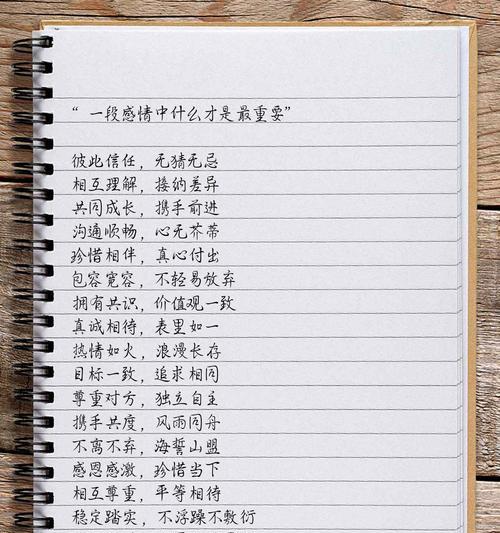 “一段感情中什么才是最重要”
彼此信任，无猜无忌
相互理解，接纳差异
共同成长，携手前进
沟通顺畅，心无芥蒂
珍惜相伴，真心付出
包容宽容，不轻易放弃
拥有共识，价值观一致
真诚相待，表里如一
热情如火，浪漫长存
目标一致，追求相同
尊重对方，独立自主
携手共度，风雨同舟
不离不弃，海誓山盟
感恩感激，珍惜当下
相互尊重，平等相待
稳定踏实，不浮躁不敷衍